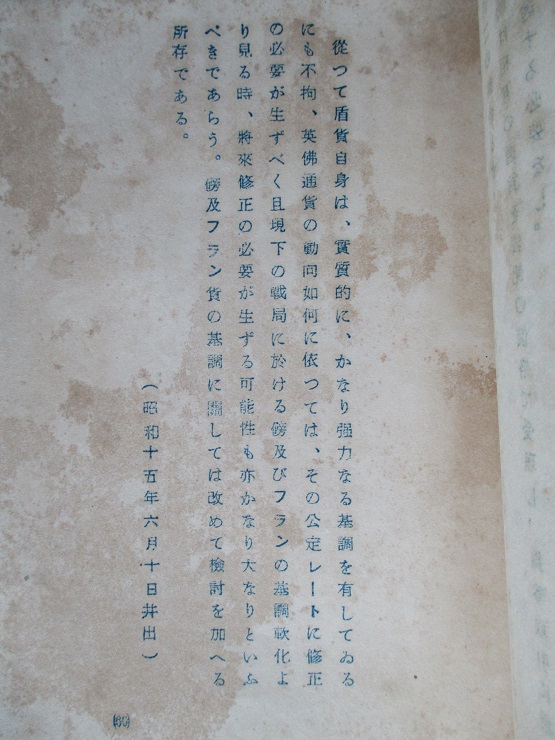 從つて盾貨自身は、實質的に、かなり强力なる基調を有してゐる
にも不拘、英佛通貨の動向如何に依つては、その公定レートに修正
の必要が生ずべく且現下の戰局に於ける磅及びフランの基調軟化よ
り見る時、將來修正の必要が生ずる可能性も亦かなり大なりといふ
べきであらう。磅及フラン貨の基調に關しては改めて檢討を加へる
所存である。
(昭和十五年六月十日井出)